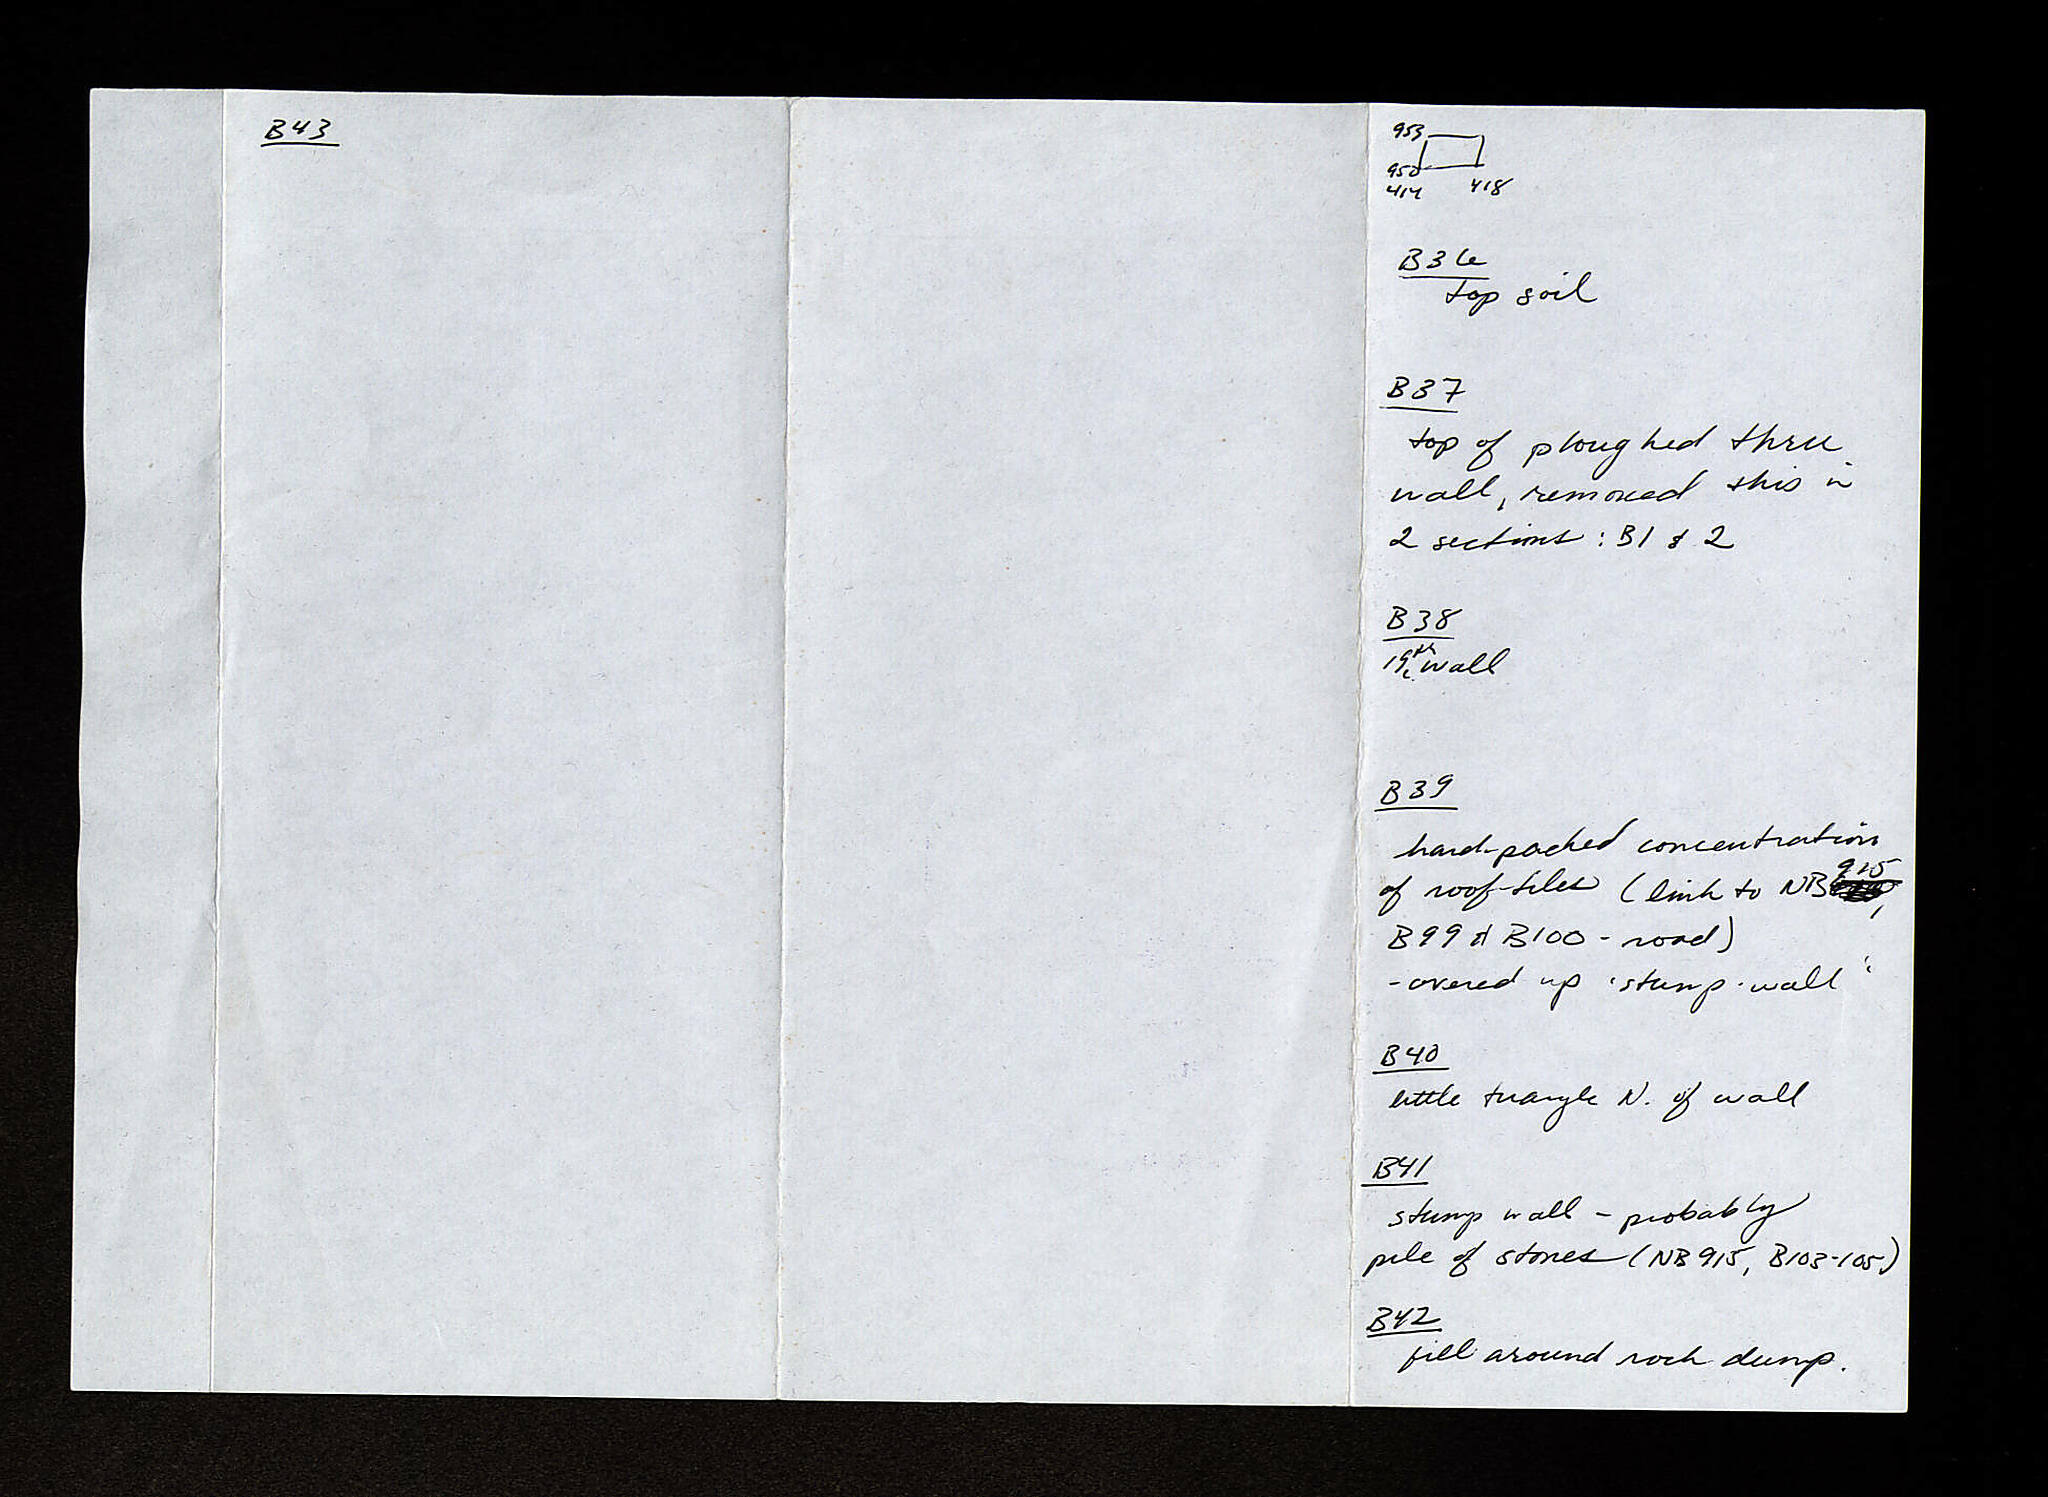 B43
953
950
414 418
B36
top soil
B37
top of ploughed thru
wall, removed this in
2 sections : B1 & 2
B38
19th c wall
B39
hard-packed concentration
915
of roof-tiles (link to NB ,
B99 & B100 - road)
- covered up 'stump-wall'
B40
little triangle N. of wall
B41
stump wall - probably
pile of stones (NB 915, B103-105)
B42
fill around rock dump.